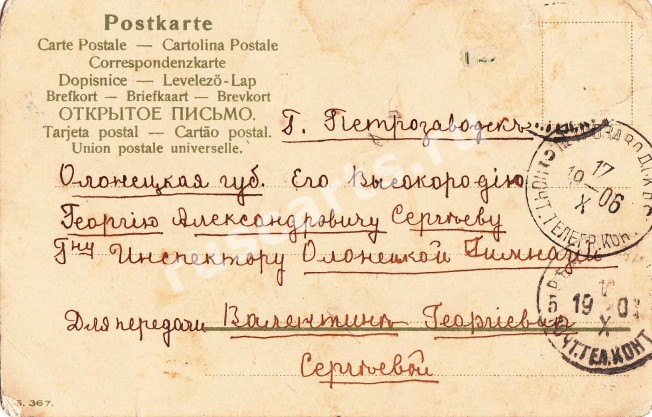 Postkarte
Carte Postale — Cartolina Postale
Correspondenzkarte
Dopisnice — Levelező-Lap
Brefkort — Briefkaart — Brevkort
ОТКРЫТОЕ ПИСЬМО.
Tarjeta postal — Cartão postal.
Union postale universelle.
Г. Петрозаводскъ
Олонецкая губ. Его Высокородію
Георгію Александровичу Сергѣеву
Гну Инспектору Олонецкой Гимназіи
Для передачи Валентинѣ Георгіевнѣ
Сергѣевой
17
19 — 06
X
ТЕЛЕГР. КОН.
5 19 0
X
ПОЧТ. ТЕЛ. КОНТ
367.
ruscarts.ru